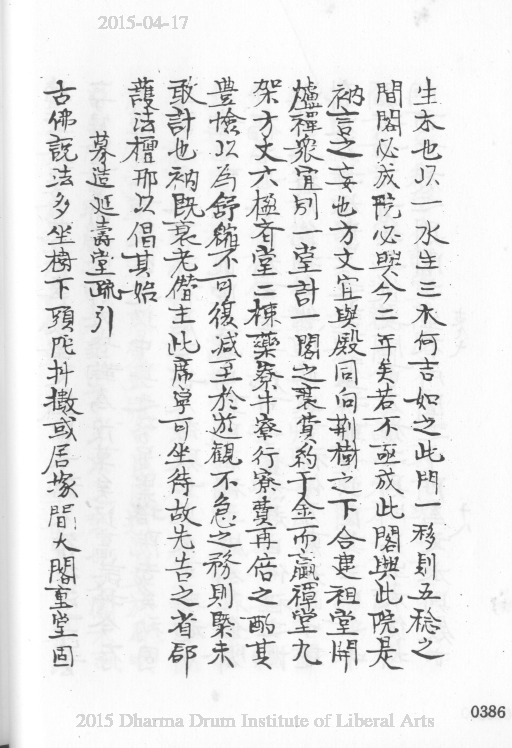 2015-04-17
生木也以一水生三木何吉如之此門一移則五稔之
間閣必成院必興今二年矣若不亟成此閣與此院是
衲言之妄也方丈宜與殿同向荊樹之下合建祖堂開
爐禪眾宜別一堂計一閣之裝費約千金而贏禪堂九
架方丈六楹齋堂二棟藥寮牛寮行寮費再倍之酌其
豐儉以為舒縮不可復减至於遊觀不急之務則槩未
敢計也衲既衰老僭主此席寧可坐待故先告之省郡
護法檀那以倡其始
募造延壽堂疏引
古佛說法多坐樹下頭陀抖擻或居塚間大閣重堂固
0386
2015 Dharma Drum Institute of Liberal Arts